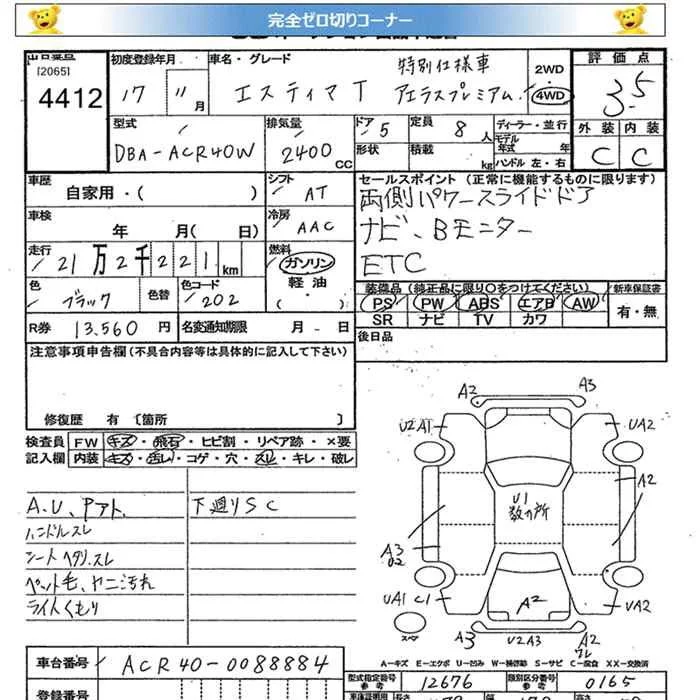 完全ゼロ切りコーナー
出品番号
[2065]
4412
初度登録年月
17 11 月
車名・グレード
エスティマT
特別仕様車
アエラスプレミアム.
2WD
・
4WD
評価点
3.5
外装 内装
C C
型式
DBA-ACR40W
排気量
2400 CC
ドア 5
形状
定員 8 人
積載 kg
ディーラー・並行
モデル年式 年
ハンドル 左・右
車歴
自家用・( )
シフト
AT
車検
年 月( 日)
冷房
AAC
セールスポイント (正常に機能するものに限ります)
両側パワースライドドア
ナビ、Bモニター
ETC
走行
21万2千221km
燃料
ガソリン
軽油・
( )
色
ブラック
色替
色コード
202
装備品 (純正品に限り○をつけてください)
PS PW ABS エアB AW
SR ナビ TV カワ
新車保証書
有・無
R券 13,560 円
名変通知期限 月 - 日
後日品
注意事項申告欄(不具合内容等は具体的に記入して下さい)
修復歴 有 〔箇所 〕
検査員 FW キズ・飛石・ヒビ割・リペア跡・×要
記入欄 内装 キズ・汚い・コゲ・穴・スレ・キレ・破レ
A.U、Pアト.
下廻りSC
ハンドルスレ
シートヘタリ.スレ
ペット毛、ヤニ汚れ
ライトくもり
A2 A3
U2A1 UA2
A2
U1
数ヶ所
A3
U2
UA1 C1 A2 UA2
スペア
A3 U2A3 A2
A―キズ E―エクボ U―凹み W―補修跡 S―サビ C―腐食 XX―交換済
車台番号 ACR40-0088884
型式指定番号
参考
12676
類別区分番号
参考
0165
登録番号